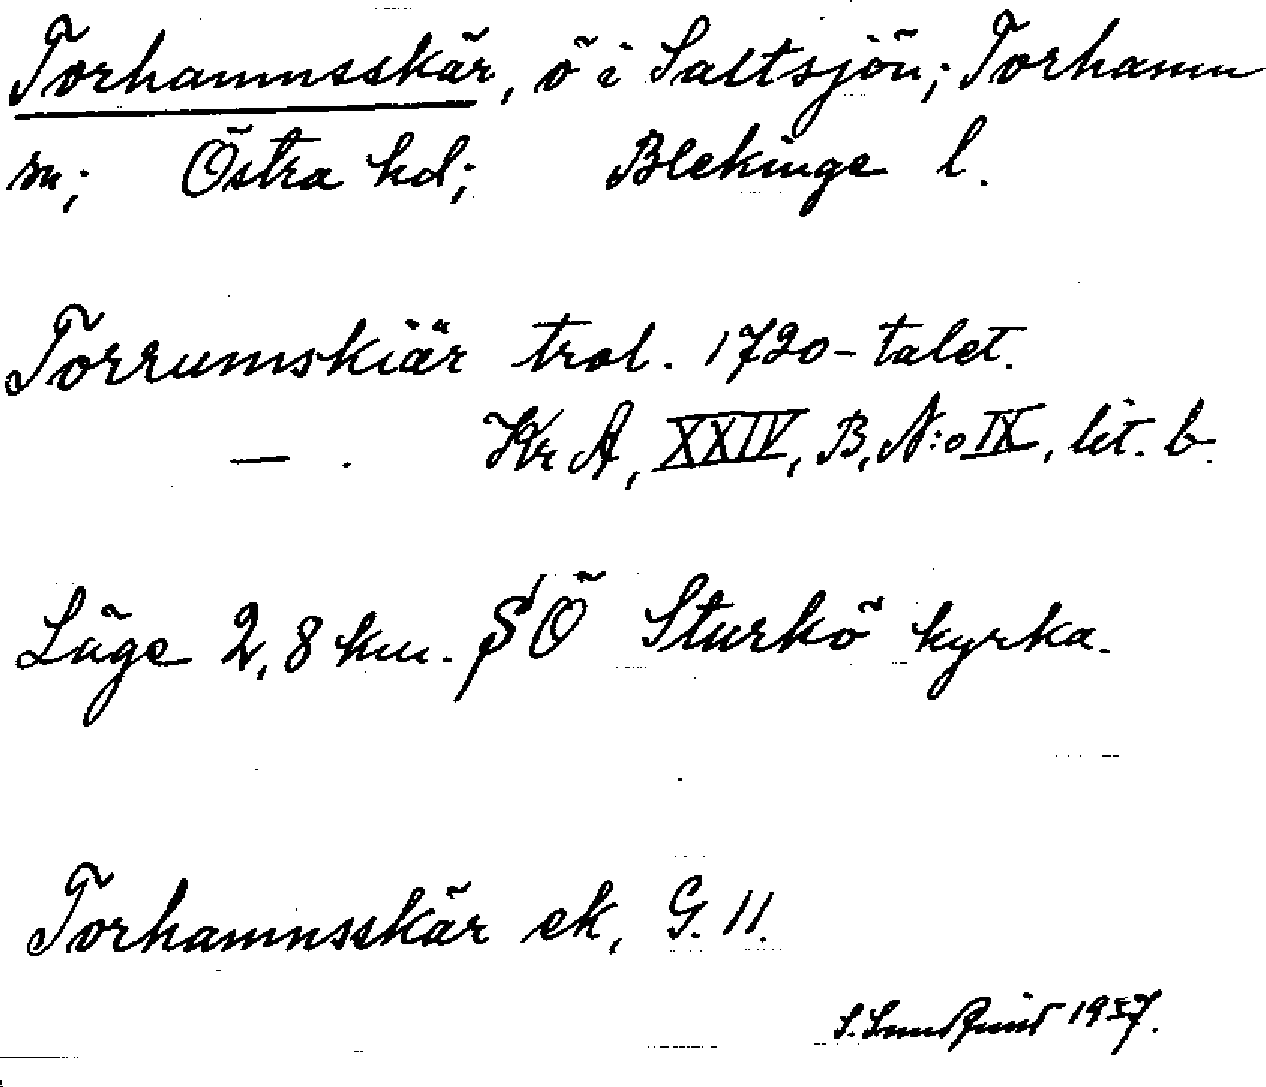 Torhamnsskär, ö i Saltsjön; Torhamn
sn; Östra hd; Blekinge l.
Torrumskiär trol. 1720-talet.
— . Kr A, XXIV, B, N:o IX, lit. b.
Läge 2,8 km. SÖ Sturkö kyrka.
Torhamnsskär ek, G. 11.
S. Lundquist 1937.